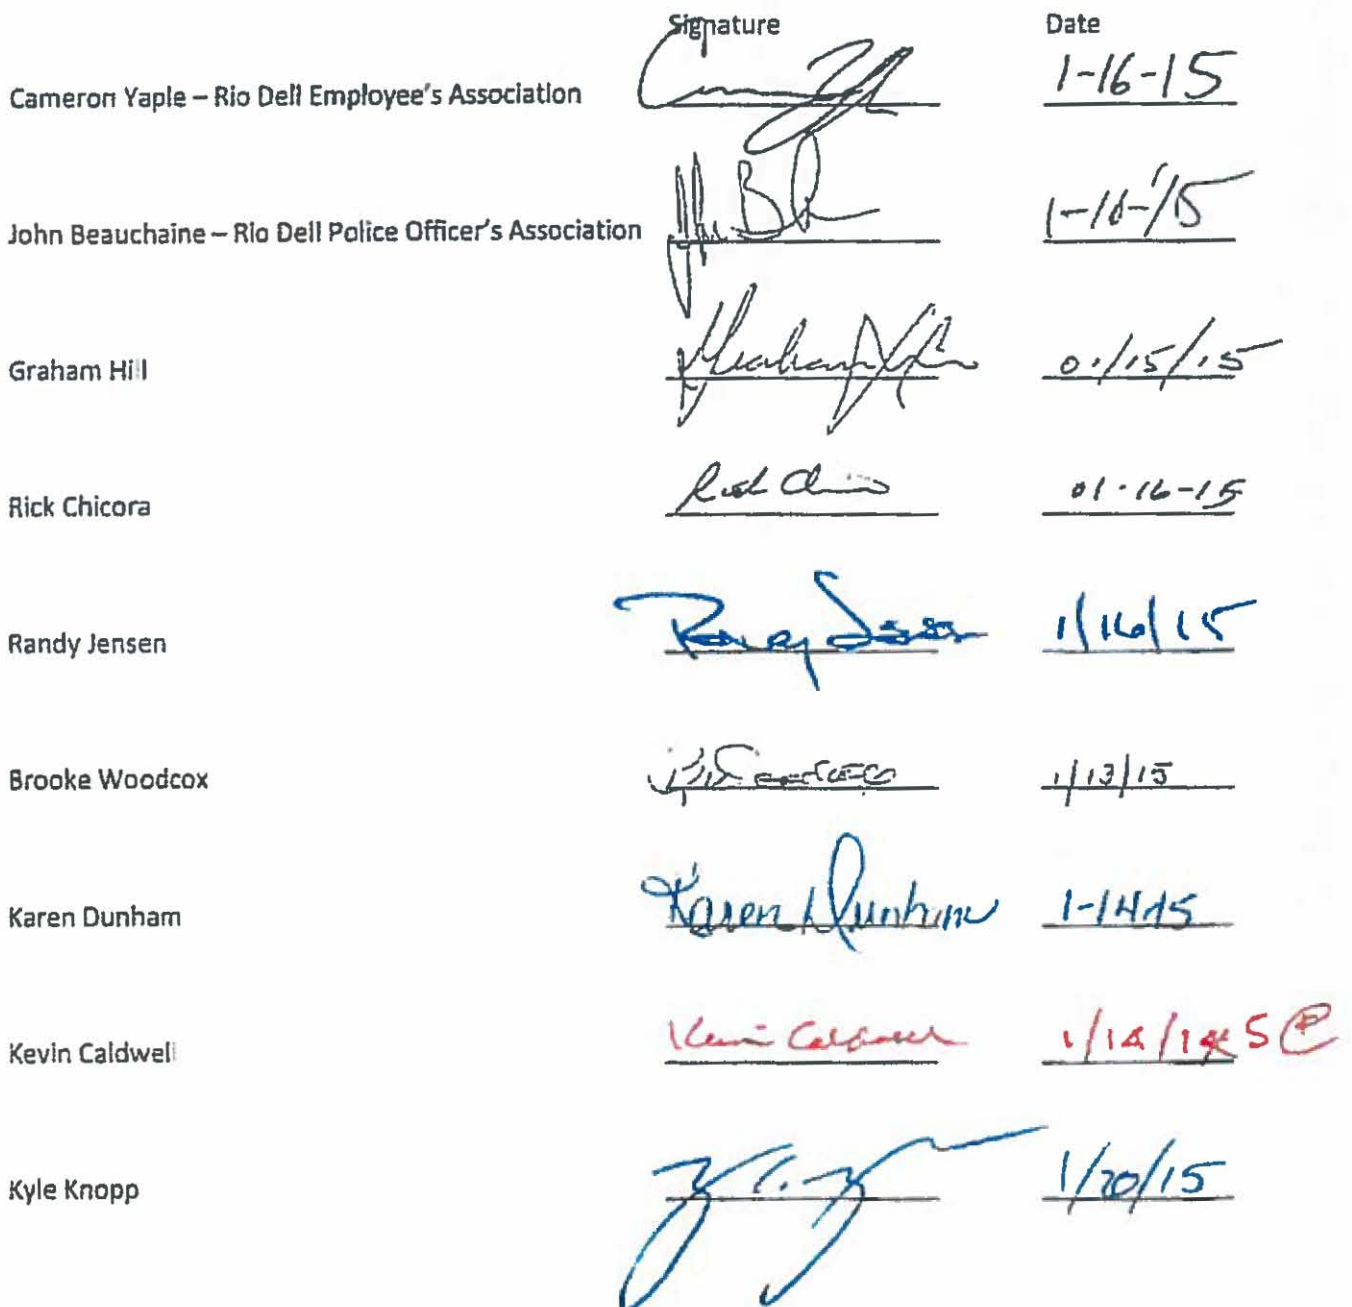 Signature Date
Cameron Yaple – Rio Dell Employee's Association 1-16-15
John Beauchaine – Rio Dell Police Officer's Association
Graham Hill Graham Hill 01/15/15
Rick Chicora Rick Chicora 01-16-15
Randy Jensen Randy Jensen 1/16/15
Brooke Woodcox 1/13/15
Karen Dunham Karen Dunham 1-14-15
Kevin Caldwell Kevin Caldwell 1/14/14 5
Kyle Knopp 1/20/15